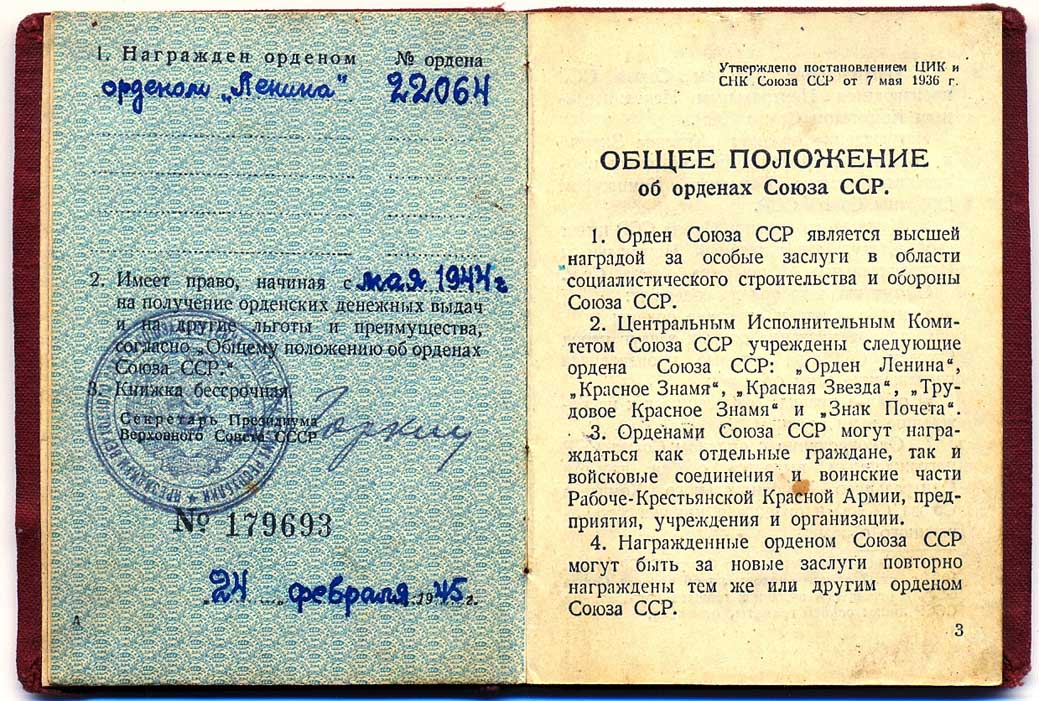 1. Награжден орденом № ордена
орденом „Ленина“ 22064
2. Имеет право, начиная с мая 1944г
на получение орденских денежных выдач
и на другие льготы и преимущества,
согласно „Общему положению об орденах
Союза ССР.“
3. Книжка бессрочная.
Секретарь Президиума
Верховного Совета СССР
Горкин
№ 179693
„24 февраля 1945 г.
Утверждено постановлением ЦИК и
СНК Союза ССР от 7 мая 1936 г.
ОБЩЕЕ ПОЛОЖЕНИЕ
об орденах Союза ССР.
1. Орден Союза ССР является высшей
наградой за особые заслуги в области
социалистического строительства и обороны
Союза ССР.
2. Центральным Исполнительным Коми-
тетом Союза ССР учреждены следующие
ордена Союза ССР: „Орден Ленина“,
„Красное Знамя“, „Красная Звезда“, „Тру-
довое Красное Знамя“ и „Знак Почета“.
3. Орденами Союза ССР могут награ-
ждаться как отдельные граждане, так и
войсковые соединения и воинские части
Рабоче-Крестьянской Красной Армии, пред-
приятия, учреждения и организации.
4. Награжденные орденом Союза ССР
могут быть за новые заслуги повторно
награждены тем же или другим орденом
Союза ССР.
3